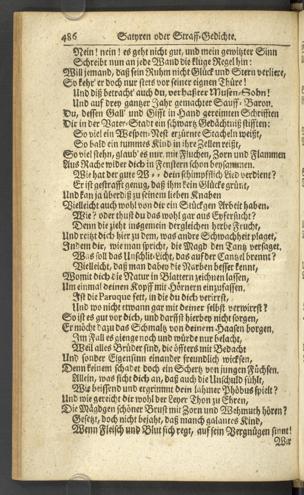 486 Satyren oder Straff-Gedichte.
Nein! nein! es geht nicht gut, und mein gewitzter Sinn
Schreibt nun an jede Wand die kluge Regel hin:
Will jemand, daß sein Ruhm nicht Glück und Stern verliere,
So kehr' er doch nur stets vor seiner eignen Thüre!
Und diß betracht' auch du, verhaßter Musen-Sohn!
Und auf drey gantzer Jahr gemachter Sauff-Baron.
Du, dessen Gall' und Gifft in Hand gereimten Schrifften
Dir in der Vater-Stadt ein schwartz Gedächtniß stifften:
So viel ein Wespen-Nest erzürnter Stacheln weißt,
So bald ein tummes Kind in ihre Zellen reißt,
So viel stehn, glaub' es nur, mit Fluchen, Zorn und Flammen
Aus Rache wider dich in Fenstern schon beysammen.
Wie hat der gute W - - dein schimpfflich Lied verdient?
Er ist gestrafft genug, daß ihm kein Glücke grünt,
Und kan ja überdiß zu seinem lieben Knaben
Vielleicht auch wohl von dir ein Stückgen Arbeit haben.
Wie? oder thust du das wohl gar aus Eyfersucht?
Denn die zieht insgemein dergleichen herbe Frucht,
Und reitzt dich hier zu dem, was andre Schwachheit plaget,
Indem dir, wie man spricht, die Magd den Tantz versaget,
Was soll das Unschlit-Licht, das auf der Cantzel brennt?
Vielleicht, daß man dabey die Narben besser kennt,
Womit dich die Natur in Blattern zeichnen lassen,
Um einmal deinen Kopff mit Hörnern einzufassen,
Ist die Paruque fett, in die du dich verirrst,
Und wo nicht etwann gar mit deiner selbst verwirrst?
So ist es gut vor dich, und darffst hierbey nicht sorgen,
Er möcht dazu das Schmaltz von deinem Haasen borgen,
Im Fall es gienge noch und würde nur belacht,
Weil alles Brüder sind, die öffters mit Bedacht
Und sonder Eigensinn einander freundlich wircken,
Denn keinem schadet doch ein Schertz von jungen Füchsen.
Allein, was ficht dich an, daß auch die Unschuld fühlt,
Was beissend und ergrimmt dein lahmer Phöbus spielt?
Und wie gereicht dir wohl der Leyer Thon zu Ehren,
Die Mägdgen schöner Brust mit Zorn und Wehmuth hören?
Gesetzt, doch nicht bejaht, daß manch galantes Kind,
Wenn Fleisch und Blut sich regt, auf sein Vergnügen sinnt!